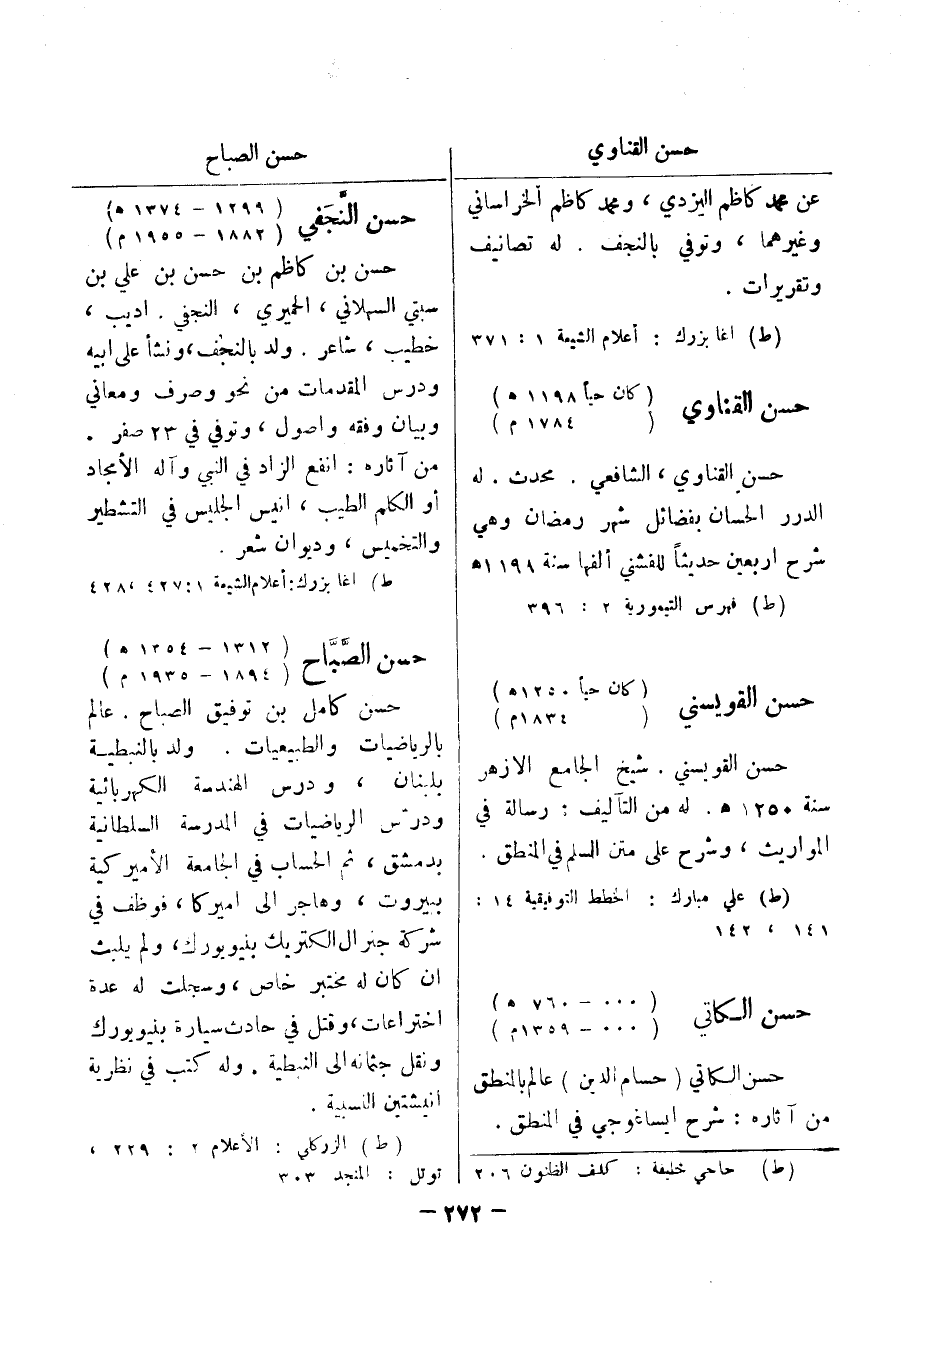 حسن القناوي
عن محمد كاظم اليزدي ، ومحمد كاظم الخراساني
وغيرهما ، وتوفي بالنجف . له تصانيف
وتقريرات .
(ط) اغا بزرك : أعلام الشيعة ١ : ٣٧١
حسن القناوي ( كان حياً ١١٩٨ ه )
( ١٧٨٤ م )
حسن القناوي ، الشافعي . محدث . له
الدرر الحسان بفضائل شهر رمضان وهي
شرح اربعين حديثاً للفشني ألفها سنة ١١٩٨ه
(ط) فهرس التيمورية ٢ : ٣٩٦
حسن القويسني ( كان حياً ١٢٥٠ه )
( ١٨٣٤م )
حسن القويسني . شيخ الجامع الازهر
سنة ١٢٥٠ ه . له من التآليف : رسالة في
المواريث ، وشرح على متن السلم في المنطق .
(ط) علي مبارك : الخطط التوفيقية ١٤ :
١٤١ ، ١٤٢
حسن الكاتي ( ٠٠٠ – ٧٦٠ ه )
( ٠٠٠ – ١٣٥٩م )
حسن الكاتي ( حسام الدين ) عالم بالمنطق
من آثاره : شرح ايساغوجي في المنطق .
(ط) حاجي خليفة : كشف الظنون ٢٠٦
حسن الصباح
حسن النَّجَفي ( ١٢٩٩ – ١٣٧٤ ه )
( ١٨٨٢ – ١٩٥٥ م )
حسن بن كاظم بن حسن بن علي بن
سبتي السهلاني ، الحميري ، النجفي . اديب ،
خطيب ، شاعر . ولد بالنجف ، ونشأ على ابيه
ودرس المقدمات من نحو وصرف ومعاني
وبيان وفقه واصول ، وتوفي في ٢٣ صفر .
من آثاره : انفع الزاد في النبي وآله الأمجاد
أو الكلم الطيب ، انيس الجليس في التشطير
والتخميس ، وديوان شعر .
ط) اغا بزرك : أعلام الشيعة ١ : ٤٢٧ ، ٤٢٨
حسن الصَّبَّاح ( ١٣١٢ – ١٣٥٤ ه )
( ١٨٩٤ – ١٩٣٥ م )
حسن كامل بن توفيق الصباح . عالم
بالرياضيات والطبيعيات . ولد بالنبطية
بلبنان ، ودرس الهندسة الكهربائية
ودرّس الرياضيات في المدرسة السلطانية
بدمشق ، ثم الحساب في الجامعة الأميركية
ببيروت ، وهاجر الى اميركا ، فوظف في
شركة جنرال الكتريك بنيويورك ، ولم يلبث
ان كان له مختبر خاص ، وسجلت له عدة
اختراعات ، وقتل في حادث سيارة بنيويورك
ونقل جثمانه الى النبطية . وله كتب في نظرية
أنيشتين النسبية .
( ط ) الزركلي : الأعلام ٢ : ٢٢٩ ،
توتل : المنجد ٣٠٣
– ٢٧٢ –